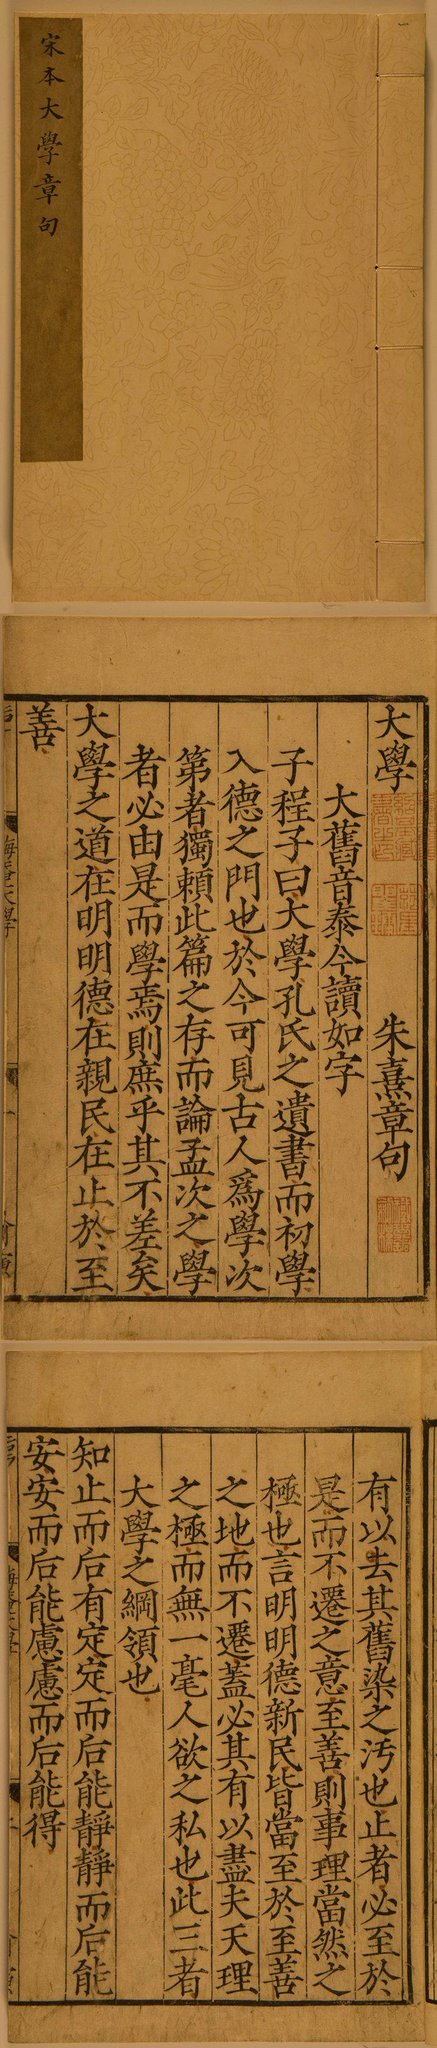 宋本大學章句
一
大學 朱熹章句
大舊音泰今讀如字
子程子曰大學孔氏之遺書而初學
入德之門也於今可見古人爲學次
第者獨賴此篇之存而論孟次之學
者必由是而學焉則庶乎其不差矣
大學之道在明明德在親民在止於至
善
有以去其舊染之汚也止者必至於
是而不遷之意至善則事理當然之
極也言明明德新民皆當至於至善
之地而不遷蓋必其有以盡夫天理
之極而無一毫人欲之私也此三者
大學之綱領也
知止而后有定定而后能靜靜而后能
安安而后能慮慮而后能得